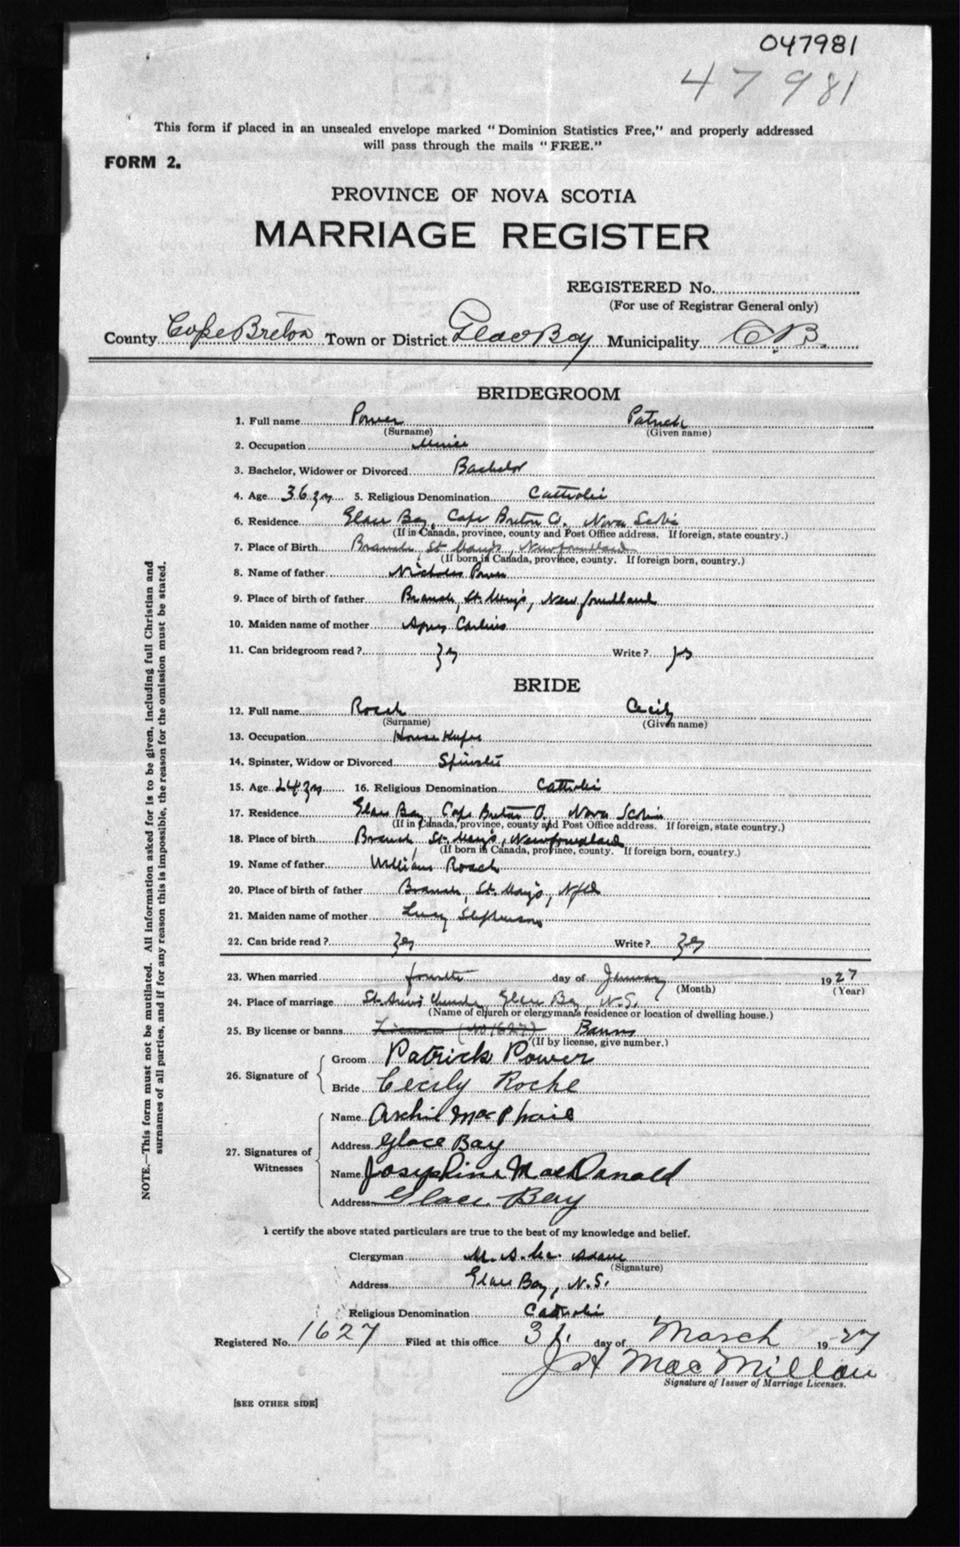 047981
47981
This form if placed in an unsealed envelope marked "Dominion Statistics Free," and properly addressed
will pass through the mails "FREE."
FORM 2.
PROVINCE OF NOVA SCOTIA
MARRIAGE REGISTER
REGISTERED No.
(For use of Registrar General only)
County Cape Breton Town or District Glace Bay Municipality C.B.
BRIDEGROOM
1. Full name Power Patrick
(Surname) (Given name)
2. Occupation
3. Bachelor, Widower or Divorced Bachelor
4. Age 36 yrs 5. Religious Denomination Catholic
6. Residence Glace Bay, Cape Breton Co., Nova Scotia
(If in Canada, province, county and Post Office address. If foreign, state country.)
7. Place of Birth Branch, St Mary's, Newfoundland
(If born in Canada, province, county. If foreign born, country.)
8. Name of father Nicholas Power
9. Place of birth of father Branch, St. Mary's, Newfoundland
10. Maiden name of mother
11. Can bridegroom read? yes Write? yes
BRIDE
12. Full name Roach Cecily
(Surname) (Given name)
13. Occupation House
14. Spinster, Widow or Divorced Spinster
15. Age 24 yrs 16. Religious Denomination Catholic
17. Residence Glace Bay, Cape Breton Co., Nova Scotia
(If in Canada, province, county and Post Office address. If foreign, state country.)
18. Place of birth Branch, St. Mary's, Newfoundland
(If born in Canada, province, county. If foreign born, country.)
19. Name of father William Roach
20. Place of birth of father Branch, St. Mary's, Nfld
21. Maiden name of mother Lucy
22. Can bride read? yes Write? yes
23. When married fourth day of January 1927
(Month) (Year)
24. Place of marriage St. Ann's Church, Glace Bay, N.S.
(Name of church or clergyman's residence or location of dwelling house.)
25. By license or banns License (No 1627) Banns
(If by license, give number.)
26. Signature of
Groom Patrick Power
Bride Cecily Roche
27. Signatures of Witnesses
Name Archie MacPhail
Address Glace Bay
Name Josephine MacDonald
Address Glace Bay
I certify the above stated particulars are true to the best of my knowledge and belief.
Clergyman M. A. Mac Adam
(Signature)
Address Glace Bay, N.S.
Religious Denomination Catholic
Registered No. 1627 Filed at this office 31 day of March 1927
J H MacMillan
Signature of Issuer of Marriage Licenses.
[SEE OTHER SIDE]
NOTE.—This form must not be mutilated. All information asked for is to be given, including full Christian and
surnames of all parties, and if for any reason this is impossible, the reason for the omission must be stated.